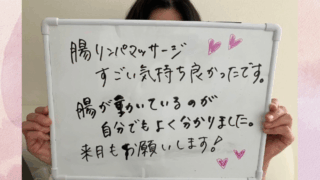 腸リンパマッサージ
すごい気持ち良かったです。
腸が動いているのが
自分でもよく分かりました。
来月もお願いします!